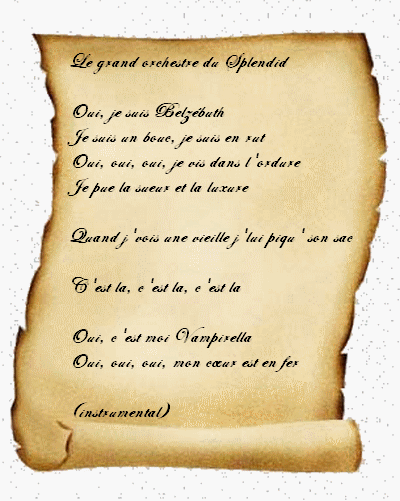 Le grand orchestre du Splendid
Oui, je suis Belzébuth
Je suis un bouc, je suis en rut
Oui, oui, oui, je vis dans l'ordure
Je pue la sueur et la luxure
Quand j'vois une vieille j'lui piqu' son sac
C'est la, c'est la, c'est la
Oui, c'est moi Vampirella
Oui, oui, oui, mon cœur est en fer
(instrumental)